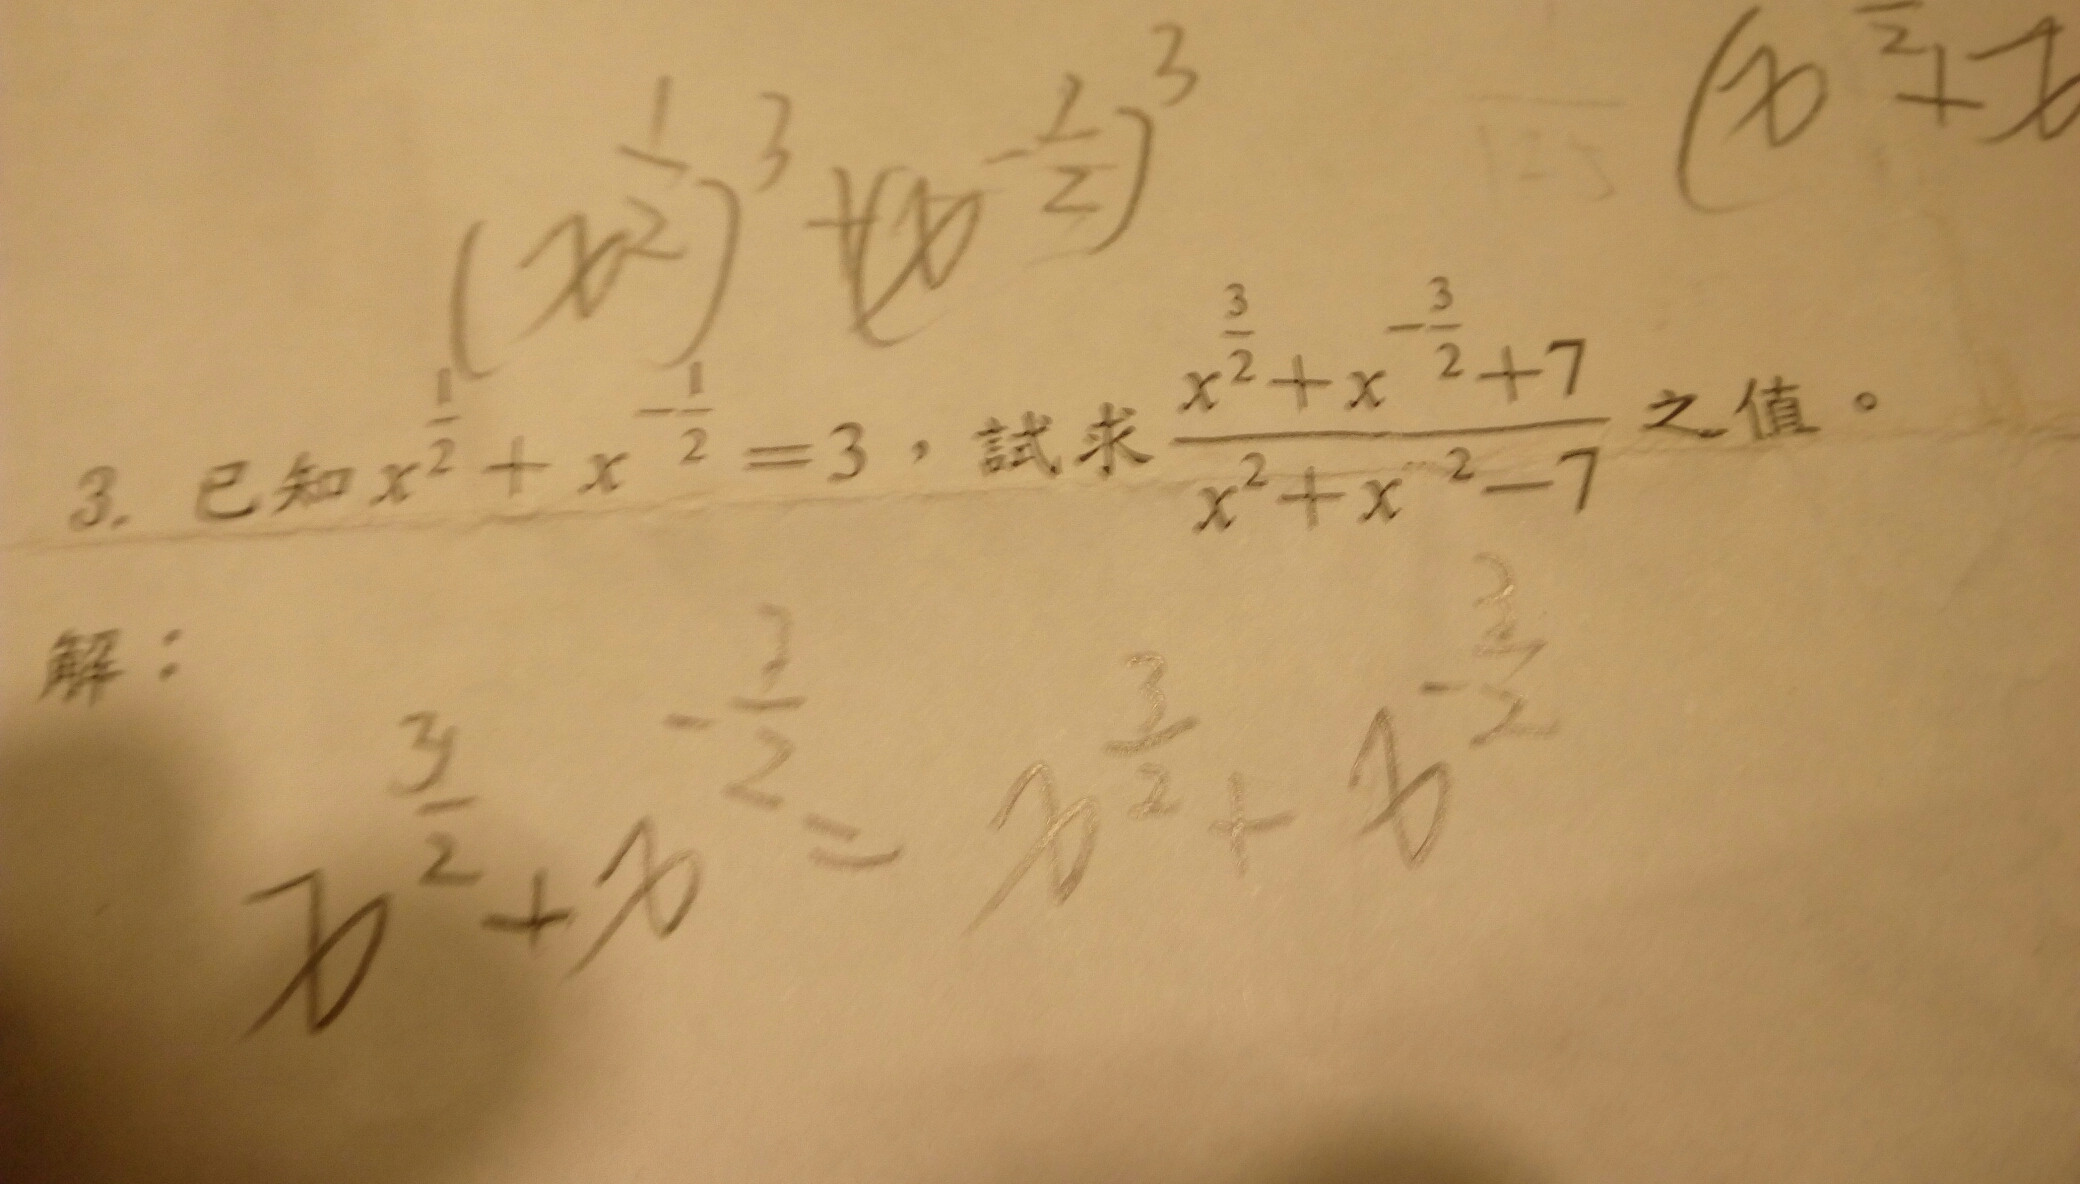 (x^{\frac{1}{2}})^3 + (x^{-\frac{1}{2}})^3
3. 已知 x^{\frac{1}{2}} + x^{-\frac{1}{2}} = 3，試求 \frac{x^{\frac{3}{2}} + x^{-\frac{3}{2}} + 7}{x^2 + x^{-2} - 7} 之值。
解：
x^{\frac{3}{2}} + x^{-\frac{3}{2}} = x^{\frac{3}{2}} + x^{-\frac{3}{2}}